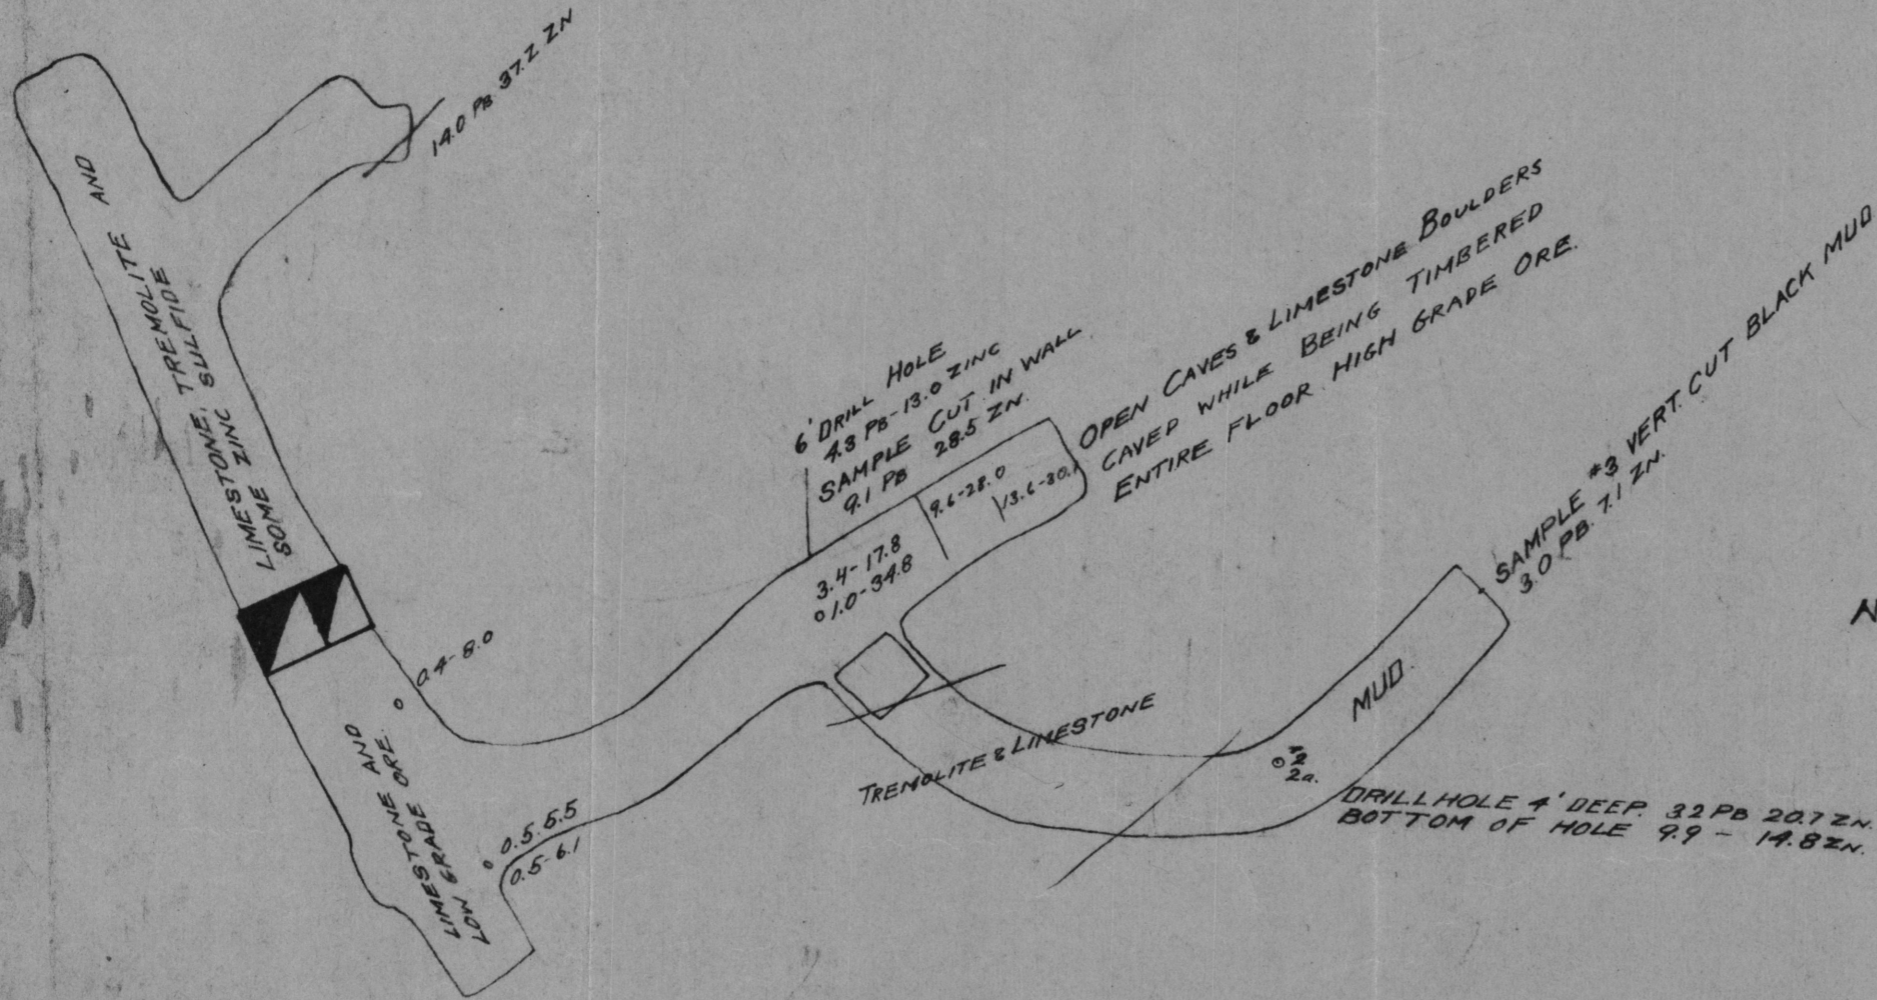 14.0 PB 37.2 ZN
LIMESTONE, TREMOLITE AND
SOME ZINC SULFIDE
6' DRILL HOLE
4.8 PB - 13.0 ZINC
SAMPLE CUT IN WALL
9.1 PB 28.5 ZN.
OPEN CAVES & LIMESTONE BOULDERS
CAVED WHILE BEING TIMBERED
ENTIRE FLOOR HIGH GRADE ORE.
9.6-28.0
13.6-30.1
3.4-17.8
1.0-34.8
SAMPLE #3 VERT. CUT BLACK MUD
3.0 PB. 7.1 ZN.
N
0.4-8.0
MUD.
TREMOLITE & LIMESTONE
2
2a.
DRILL HOLE 4' DEEP. 3.2 PB 20.7 ZN.
BOTTOM OF HOLE 9.9 - 14.8 ZN.
LIMESTONE AND
LOW GRADE ORE.
0.5-5.5
0.5-6.1